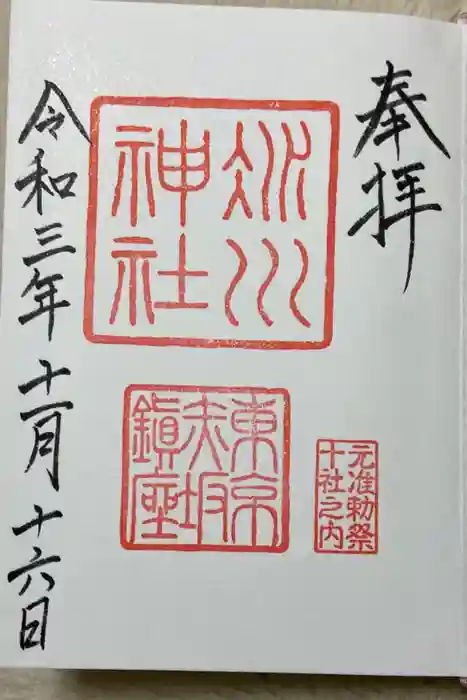 奉拝
氷川
神社
東京
赤坂
鎮座
元准勅祭
十社之内
令和三年十一月十六日